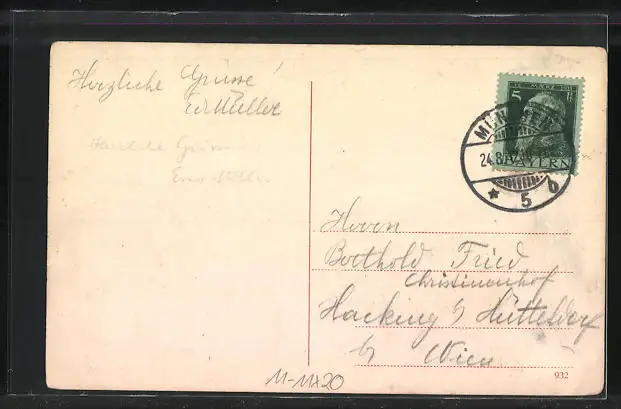 Herzliche Grüsse!
E. Müller
Herzliche Grüsse
Müller
5 MÄRZ 1911
BAYERN
MÜNCHEN
24.8.
* 5 b
Herrn
Berthold Fried
Christinenhof
Hacking b/ Hütteldorf
b/ Wien
932